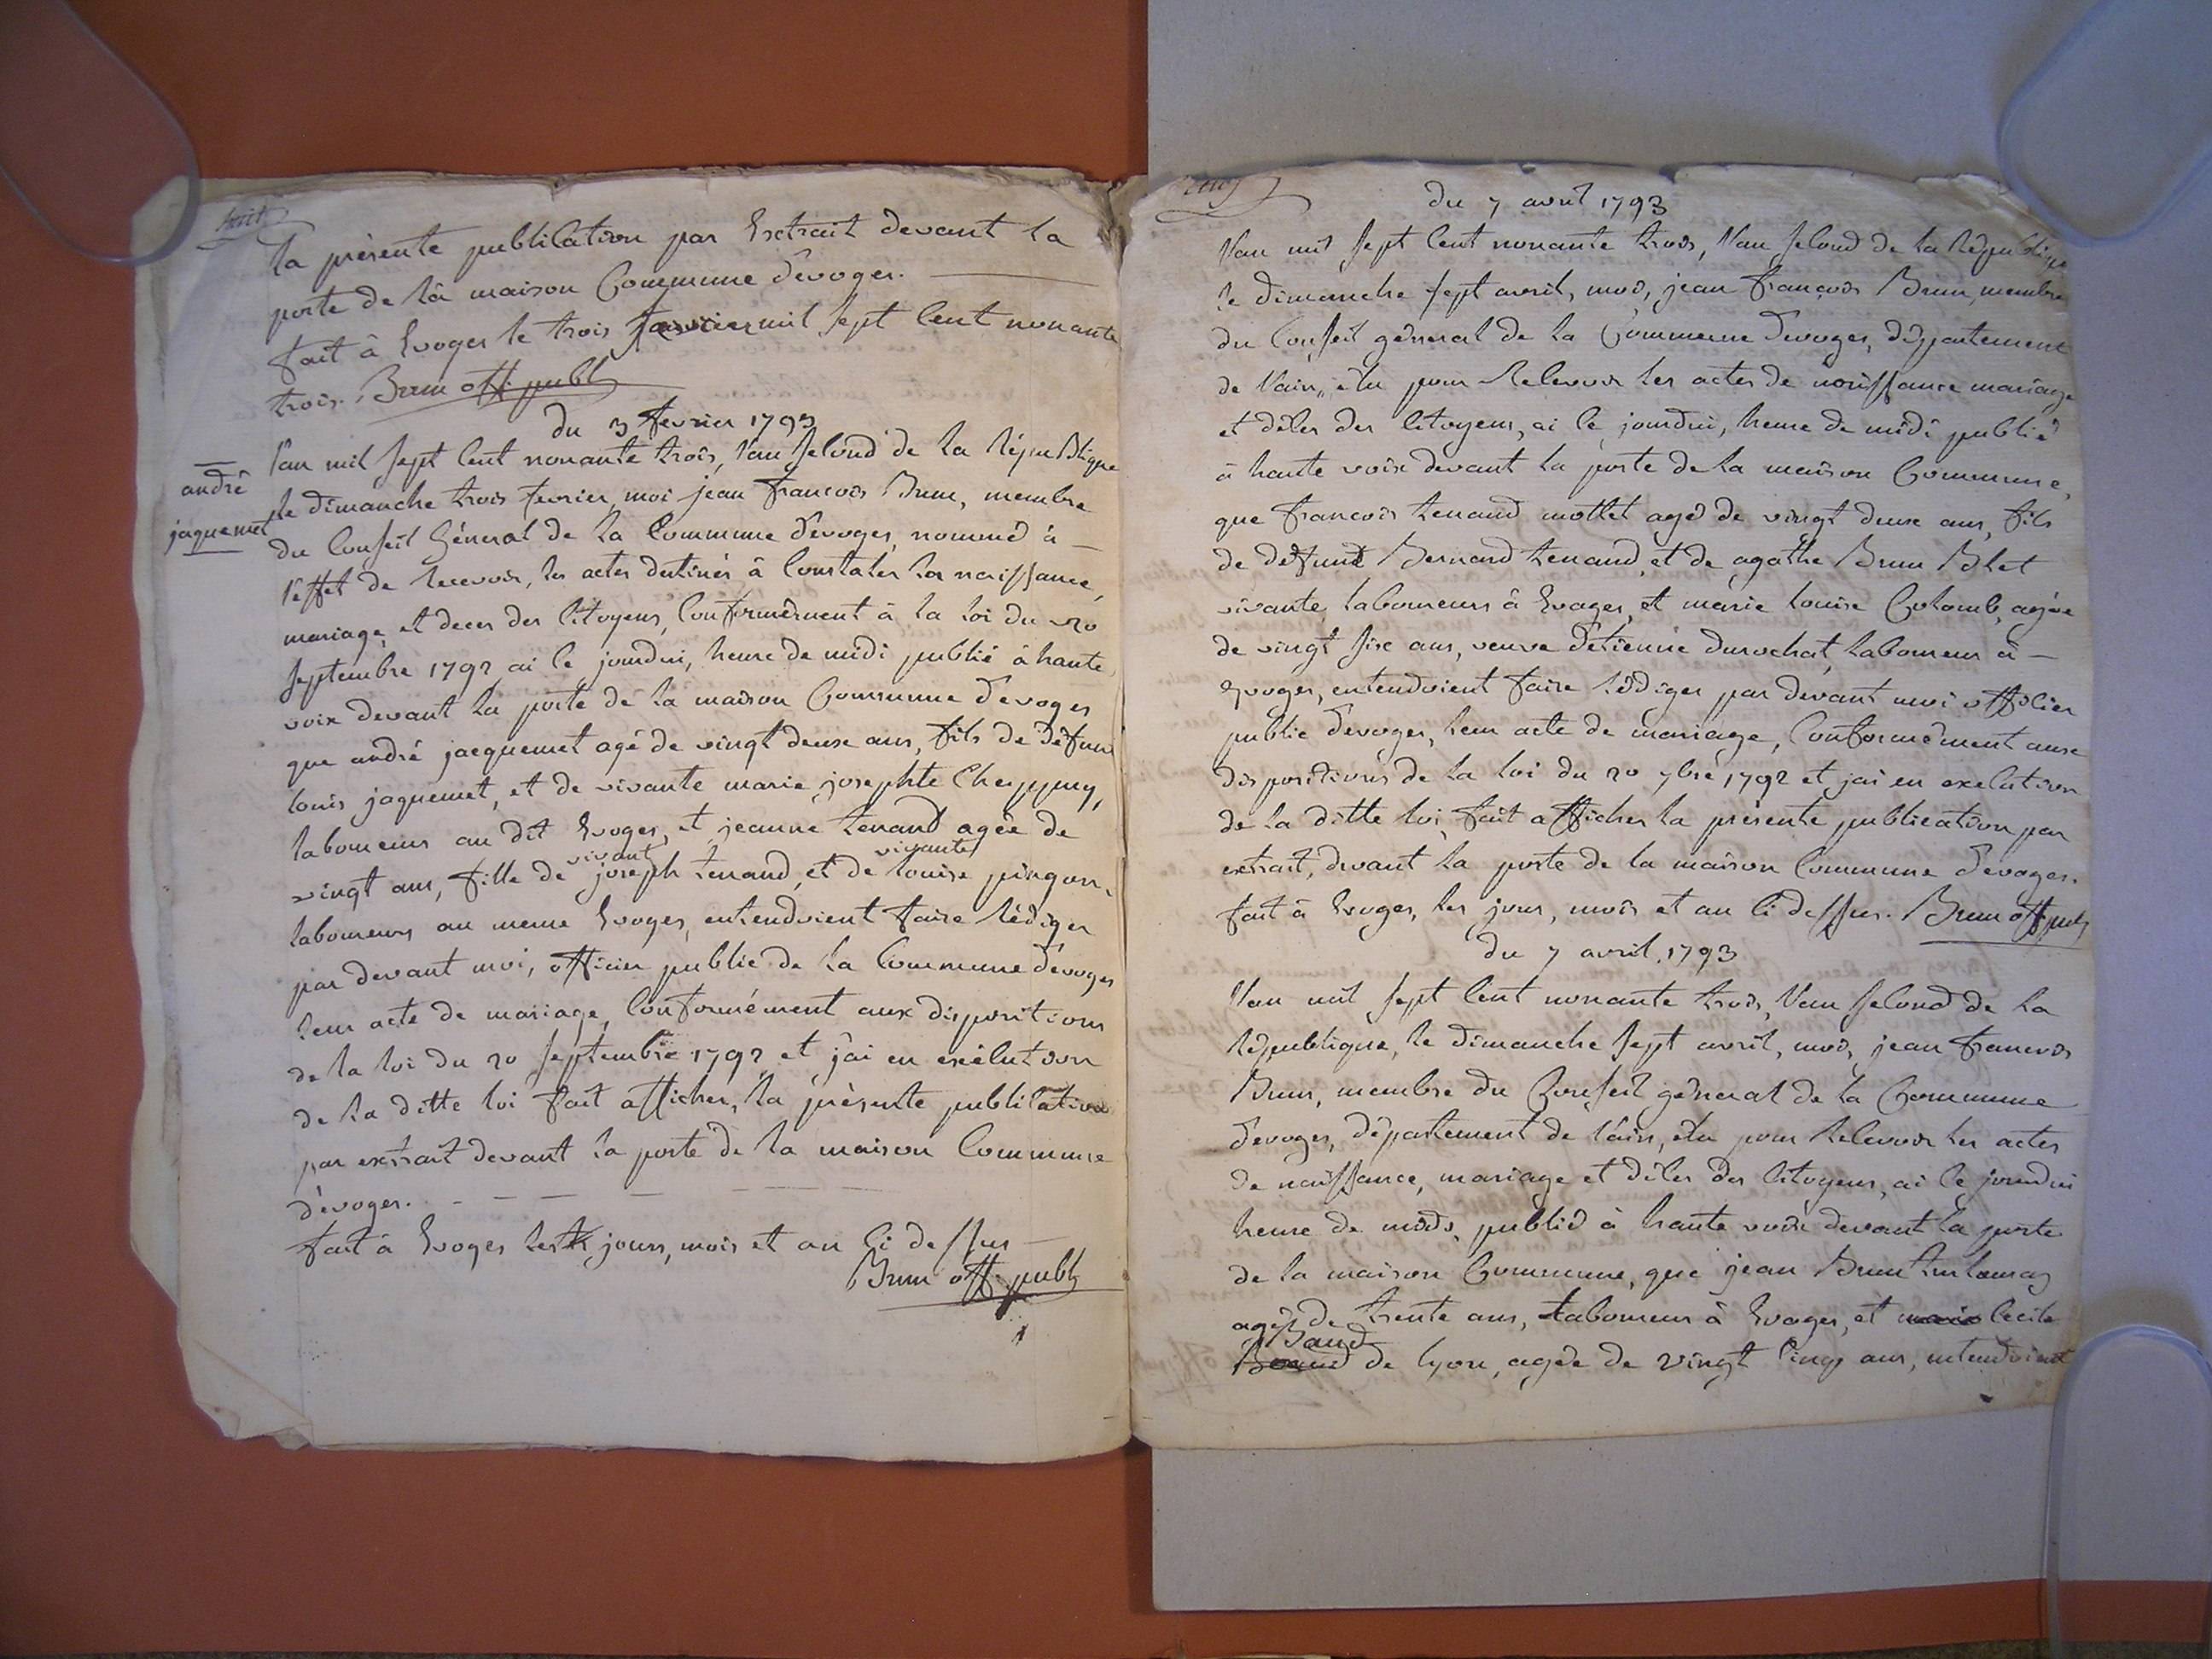 huit
la présente publication par Extrait devant la
porte de la maison Commune d'evoges.
fait à Evoges le trois fevrier mil sept cent nonante
trois. Brun off. publ
du 3 fevrier 1793
andré
jaquemet
l'an mil sept cent nonante trois, l'an second de la République
le dimanche trois fevrier, moi jean francois Brun, membre
du Conseil Géneral de la Commune d'evoges, nommé à
l'effet de recevoir, les actes destinés à Constater les naissance,
mariage, et deces des Citoyens, Conformément à la loi du 20
septembre 1792 ai ce jourdui, heure de midi publié à haute
voix devant la porte de la maison Commune d'evoges
que andré jacquemet agé de vingt deux ans, fils de défunt
louis jaquemet, et de vivante marie josephte
laboureurs au dit Evoges, et jeanne tenand agée de
vingt ans, fille de vivant joseph tenand, et de vivante louise pingon,
laboureurs au meme Evoges, entendoient faire rédiger
par devant moi, officier public de la Commune d'evoges
leur acte de mariage, Conformément aux dispositions
de la loi du 20 septembre 1792 et j'ai en exécution
de la ditte loi fait afficher, la présente publication
par extrait devant la porte de la maison Commune
d'evoges.
fait à Evoges les jours, mois et an ci dessus
Brun off. publ
neuf
du 7 avril 1793
l'an mil sept cent nonante trois, l'an second de la République
le dimanche sept avril, moi, jean françois Brun, membre
du Conseil géneral de la Commune d'evoges, département
de l'ain, élu pour recevoir les actes de naissance mariage
et décès des citoyens, ai ce jourdui, heure de midi publié
à haute voix devant la porte de la maison Commune,
que francois tenand mollet agé de vingt deux ans, fils
de défunt Bernard tenand, et de agathe Brun Blet
vivante, laboureurs à Evoges, et marie louise Colomb, agée
de vingt six ans, veuve d'etienne durochat, laboureur à
Evoges, entendoient faire rédiger par devant moi officier
public d'evoges, leur acte de mariage, Conformément aux
dispositions de la loi du 20 7bre 1792 et j'ai en execution
de la ditte loi, fait afficher la présente publication par
extrait, devant la porte de la maison Commune d'evoges.
fait à Evoges, les jour, mois et an ci dessus. Brun off publ
du 7 avril, 1793
l'an mil sept cent nonante trois, l'an second de la
république, le dimanche sept avril, moi, jean francois
Brun, membre du Conseil géneral de la Commune
d'evoges, département de l'ain, élu pour recevoir les actes
de naissance, mariage et décès des citoyens, ai ce jourdui
heure de midi, publié à haute voix devant la porte
de la maison Commune, que jean Brun
agé de trente ans, laboureur à Evoges, et marie Cecile
Baud de lyon, agée de vingt cinq ans, entendoient